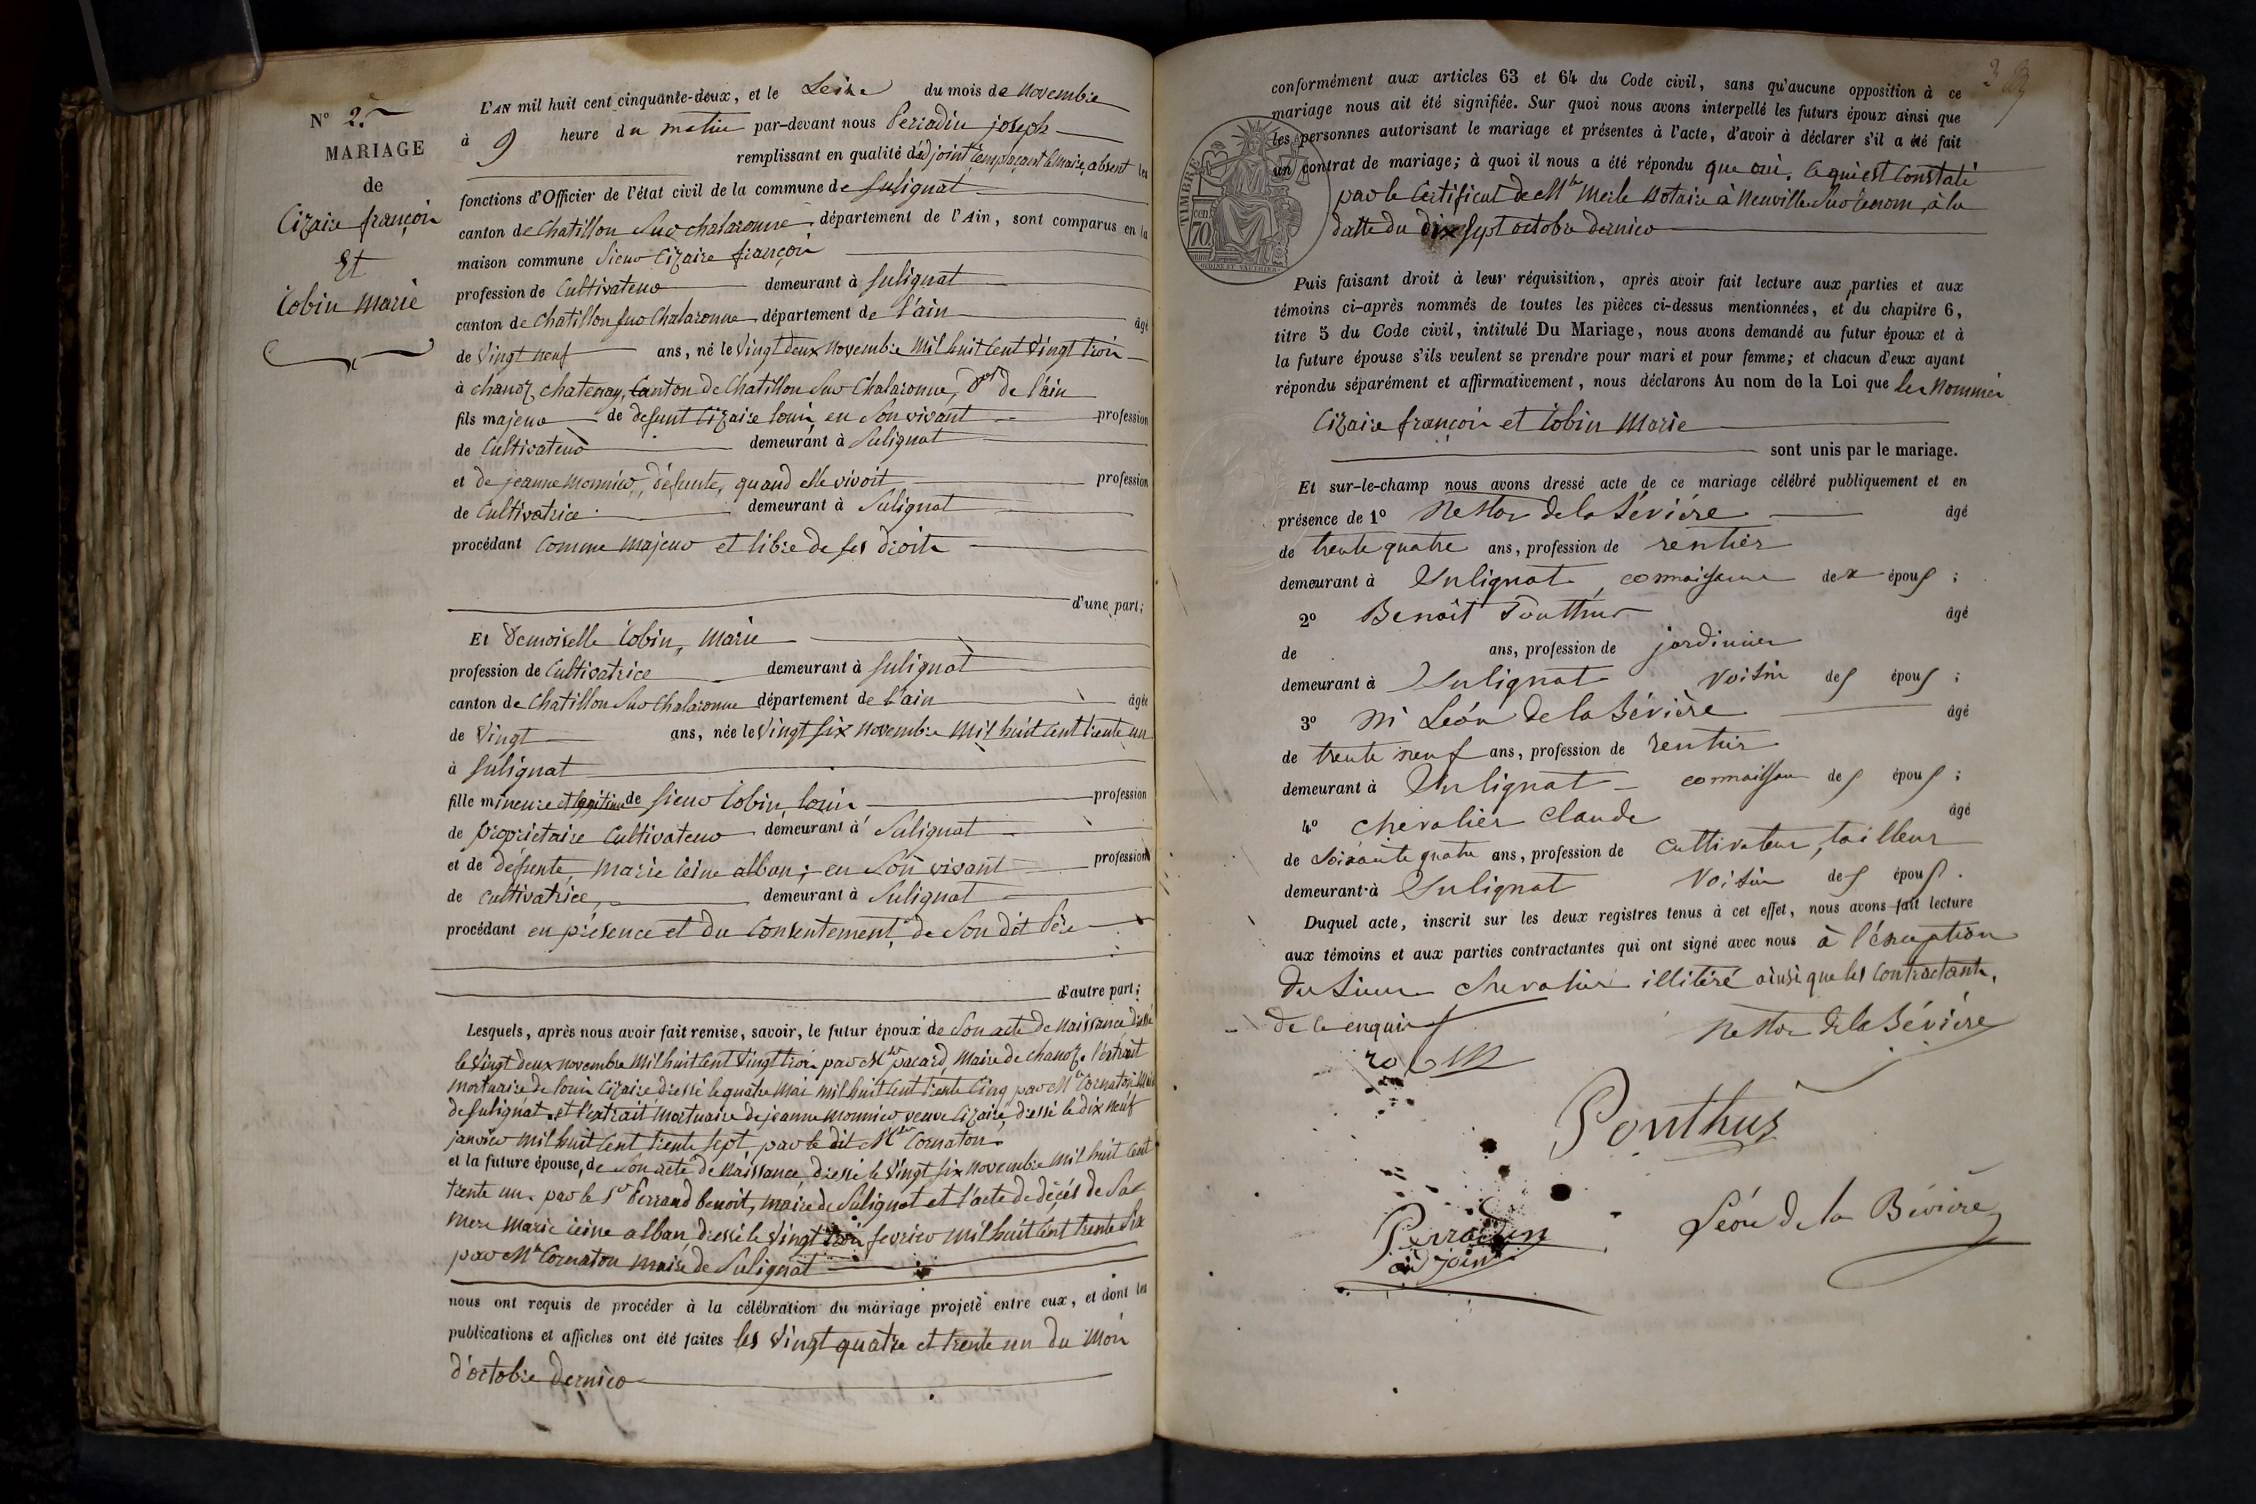 N° 2.
MARIAGE
de
Cizaire françois
Et
Cobin Marie
L'AN mil huit cent cinquante-deux, et le Seize du mois de Novembre
à 9 heure du matin par-devant nous Perradin joseph
remplissant en qualité d'adjoint remplaçant le maire, absent les
fonctions d'Officier de l'état civil de la commune de Sulignat
canton de Chatillon Sur chalaronne département de l'Ain, sont comparus en la
maison commune Sieur Cizaire françois
profession de Cultivateur demeurant à Sulignat
canton de Chatillon sur Chalaronne département de L'ain âgé
de Vingt neuf ans, né le Vingt deux Novembre Mil huit Cent Vingt trois
à chanoz chatenay, Canton de Chatillon Sur Chalaronne, Dpt de l'ain
fils majeur de defunt Cizaire louis en Son vivant profession
de Cultivateur demeurant à Sulignat
et de jeanne Monnier, défunte, quand elle vivoit profession
de Cultivatrice demeurant à Sulignat
procédant Comme Majeur et libre de ses droits
d'une part;
Et Demoiselle Cobin, Marie
profession de Cultivatrice demeurant à Sulignat
canton de Chatillon Sur Chalaronne département de L'ain âgée
de Vingt ans, née le Vingt Six Novembre Mil huit Cent trente un
à Sulignat
fille mineure et legitime de Sieur Cobin, louis profession
de proprietaire Cultivateur demeurant à Sulignat
et de défunte, Marie reine alban; en Son vivant profession
de cultivatrice, demeurant à Sulignat
procédant en présence et du Consentement de Son dit Père
d'autre part;
Lesquels, après nous avoir fait remise, savoir, le futur époux de Son acte de Naissance dressé
le Vingt deux novembre Mil huit Cent Vingt trois par Mr pacard, Maire de chanoz. l'extrait
mortuaire de louis Cizaire dressé le quatre Mai Mil huit Cent trente Cinq par Mr Cornaton Maire
de Sulignat. et l'extrait Mortuaire de jeanne Monnier veuve Cizaire, dressé le dix neuf
janvier Mil huit Cent trente Sept par le dit Mr Cornaton.
et la future épouse, de Son acte de Naissance dressé le Vingt Six Novembre Mil huit Cent
trente un. par le Sr Ferrand benoit, maire de Sulignat et l'acte de décès de Sa
Mere Marie reine alban dressé le Vingt trois fevrier Mil huit Cent trente Six
par Mr Cornaton Maire de Sulignat
nous ont requis de procéder à la célébration du mariage projeté entre eux, et dont les
publications et affiches ont été faites les Vingt quatre et trente un du Mois
d'octobre Dernier
conformément aux articles 63 et 64 du Code civil, sans qu'aucune opposition à ce
mariage nous ait été signifiée. Sur quoi nous avons interpellé les futurs époux ainsi que
les personnes autorisant le mariage et présentes à l'acte, d'avoir à déclarer s'il a été fait
un contrat de mariage; à quoi il nous a été répondu que oui. Ce qui est Constaté
par le Certificat de Mtre Merle Notaire à Neuville sur renom, à la
datte du dix Sept octobre dernier
TIMBRE
cen
70
Puis faisant droit à leur réquisition, après avoir fait lecture aux parties et aux
témoins ci-après nommés de toutes les pièces ci-dessus mentionnées, et du chapitre 6,
titre 5 du Code civil, intitulé Du Mariage, nous avons demandé au futur époux et à
la future épouse s'ils veulent se prendre pour mari et pour femme; et chacun d'eux ayant
répondu séparément et affirmativement, nous déclarons Au nom de la Loi que les Nommés
Cizaire françois et Cobin Marie
sont unis par le mariage.
Et sur-le-champ nous avons dressé acte de ce mariage célébré publiquement et en
présence de 1° Nestor de la Bévière âgé
de trente quatre ans, profession de rentier
demeurant à Sulignat, connaissance des épous;
2° Benoit Ponthus âgé
de ans, profession de jardinier
demeurant à Sulignat Voisin des épous;
3° Mr Léon de la Bévière âgé
de trente neuf ans, profession de rentier
demeurant à Sulignat connaissance des épous;
4° Chevalier Claude âgé
de Soixante quatre ans, profession de cultivateur, tailleur
demeurant à Sulignat Voisin des épous.
Duquel acte, inscrit sur les deux registres tenus à cet effet, nous avons fait lecture
aux témoins et aux parties contractantes qui ont signé avec nous à l'éxception
du Sieur Chevalier illitéré ainsi que les Contractants,
de ce enquis
Nestor de la Bévière
Ponthus
Perradin
adjoint
Léon de la Bévière